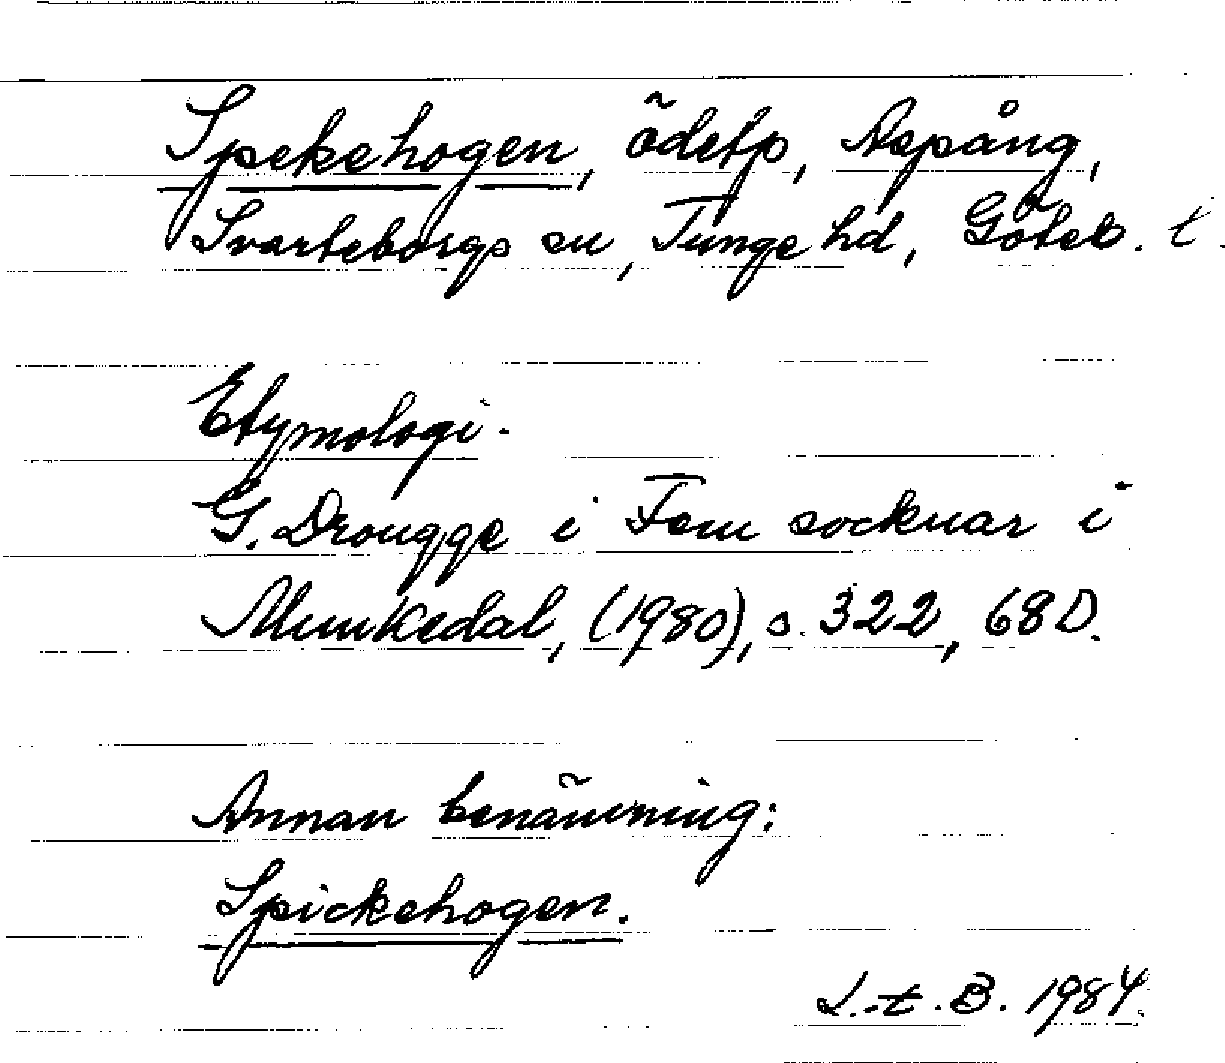 Spekehogen, ödetp, Aspång,
Svarteborgs sn, Tunge hd, Göteb. l.
Etymologi.
G. Drougge i Fem socknar i
Munkedal, (1980), s. 322, 68 D.
Annan benämning:
Spickehogen.
L.t.B. 1984.